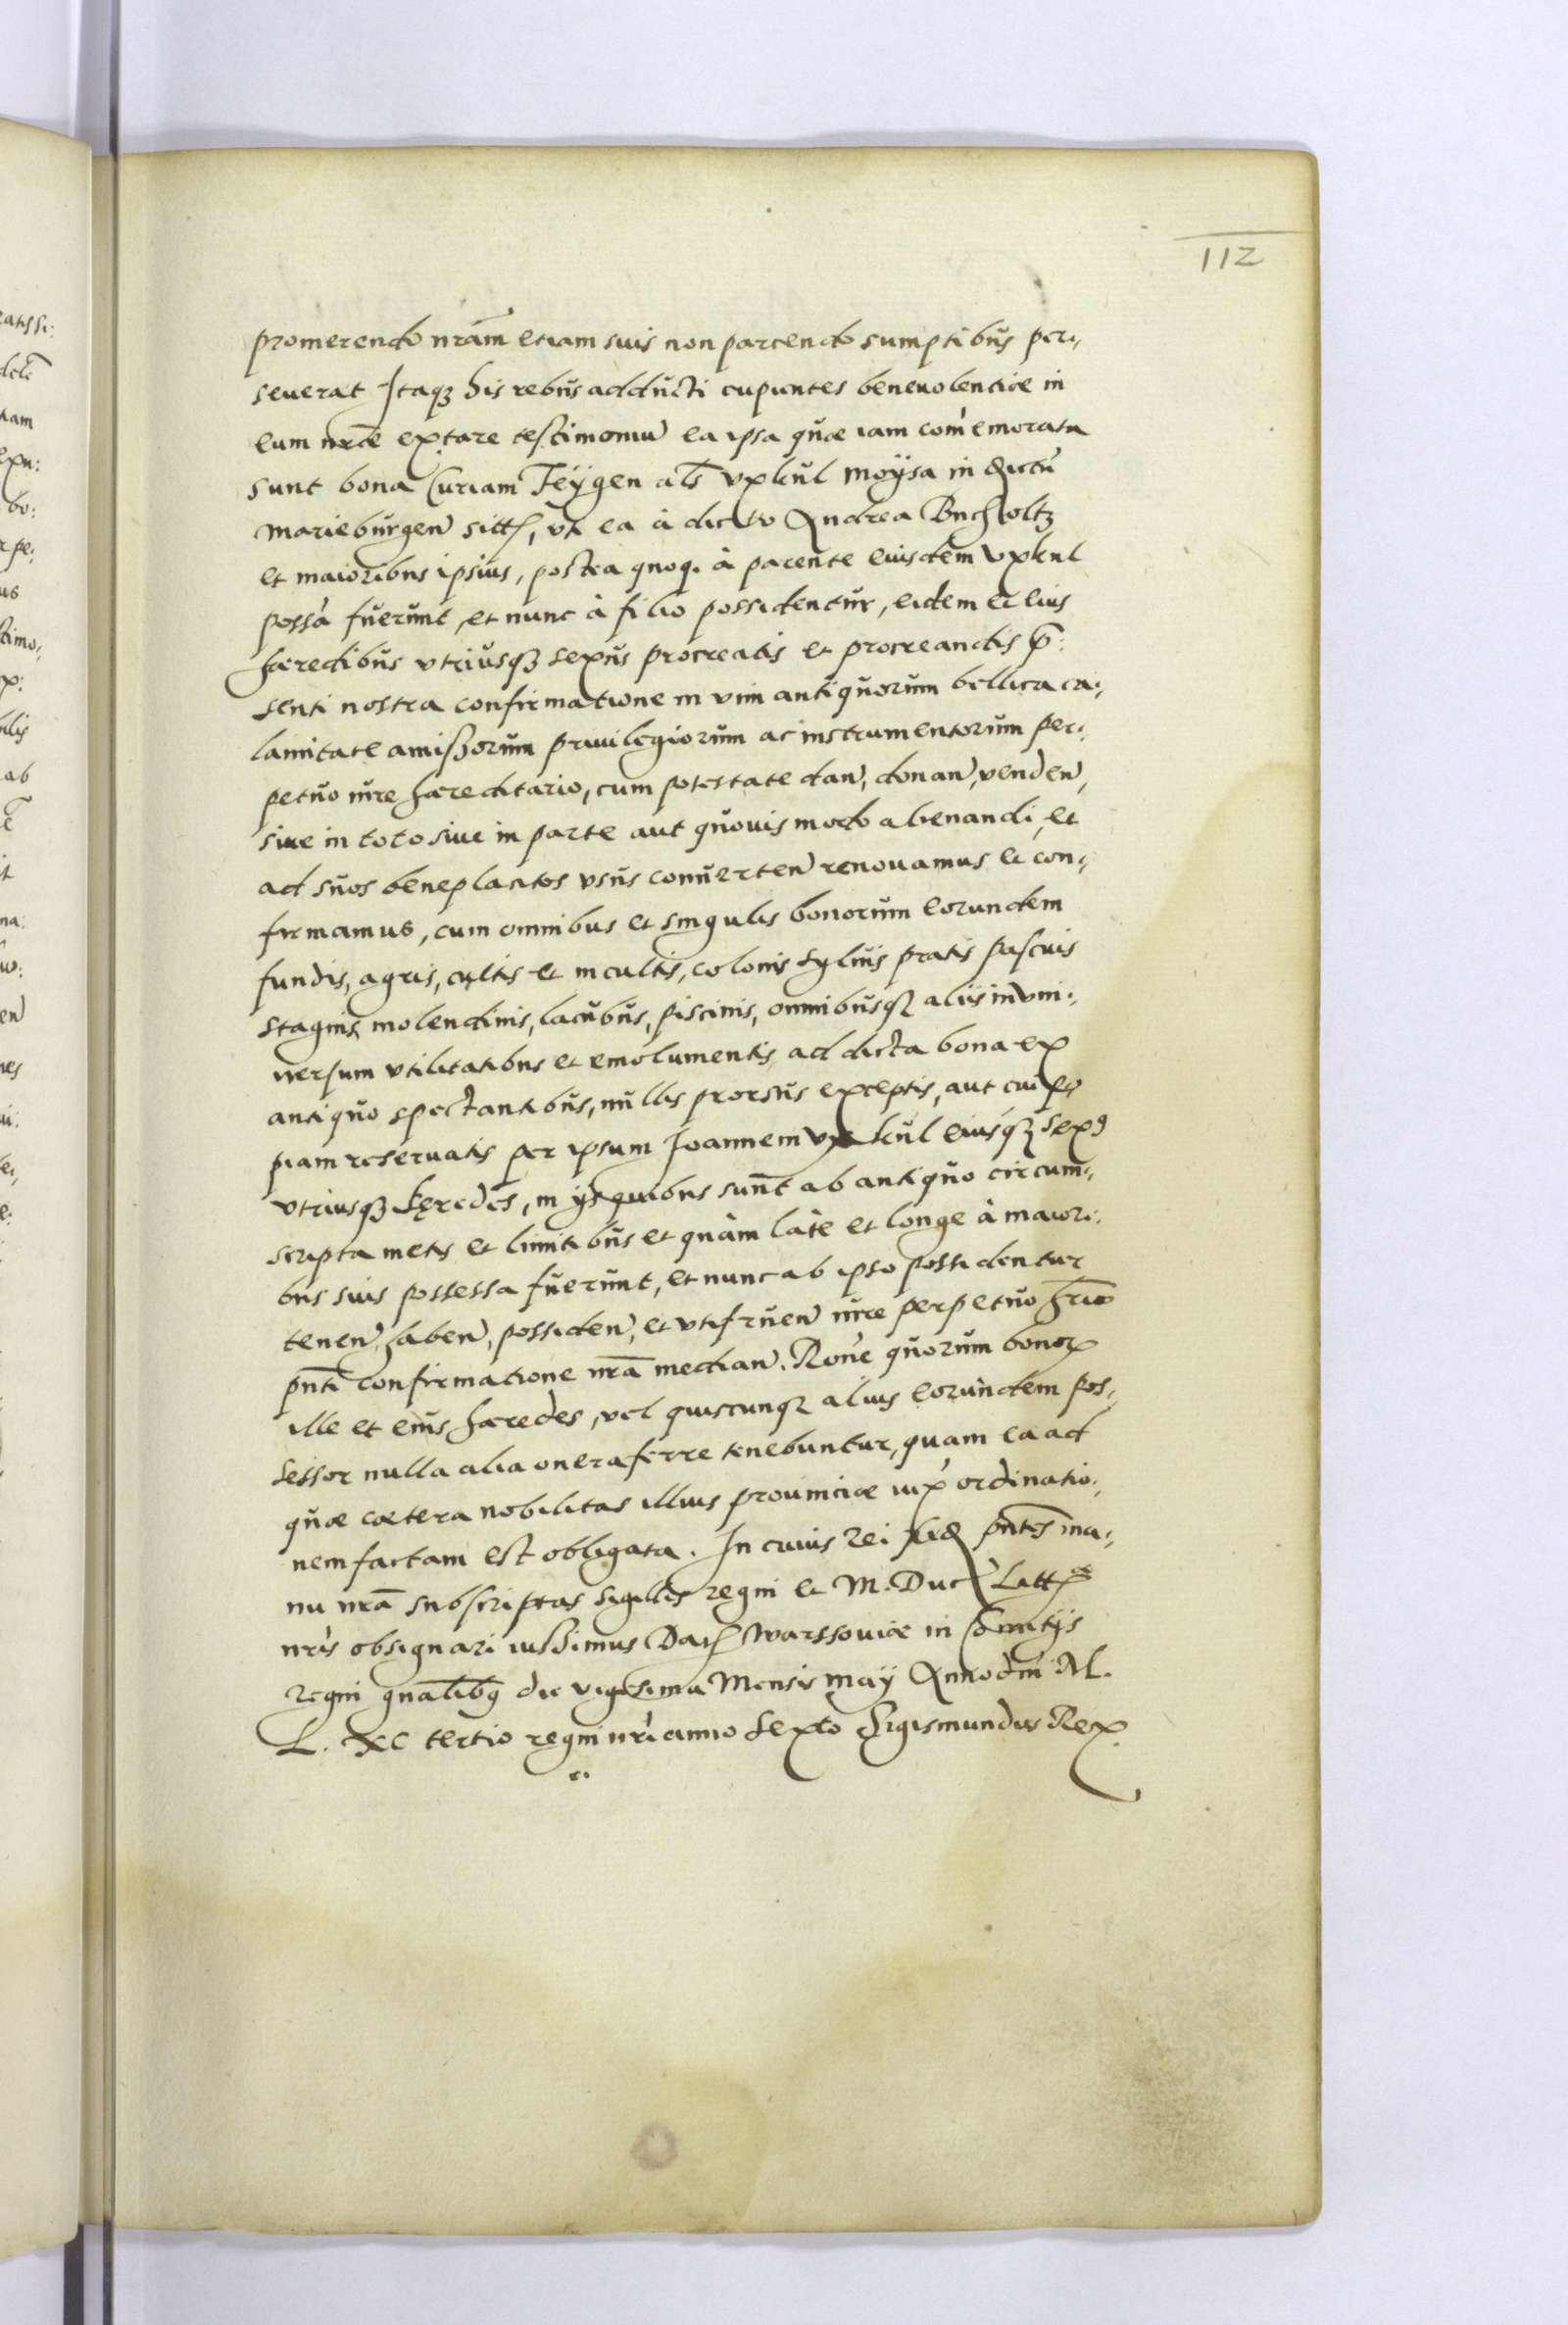 112
promerendo nr̃am etiam suis non parcendo sumptibus per,
seuerat Itaqȝ his rebus adducti cupuentes beneuolentiæ in
eum nrãe extare testimoniũ ea ipsa quæ iam com̃emorata
sunt bona Curiam Feÿgen als̃ vxkul Moÿsa in
Marieburgen̄ sitt, vti ea à dicto Andrea Bucholtz
et maioribus ipsius, postea quoq. à parente eiusdem vxkul
possa fuerunt, et nunc à filio possidentur, eidem et eius
hæredibus vtriusqȝ sexus procreatis et procreandis p̃:
senti nostra confirmatione in vim antiquorum bellica ca,
lamitate amißorum priuilegiorum ac instrumentorum per,
petuo iure hæreditario, cum potestate dan̄, donan̄, venden̄,
siue in toto siue in parte aut quouis modo alienandi, et
ad suos beneplacitos vsus conuerten̄ renouamus et con,
firmamus, cum omnibus et singulis bonorum eorundem
fundis, agris, cultis et incultis, colonis syluis pratis pascuis
stagnis molendinis, lacubus, piscinis, omnibusqȝ aliis in vni,
uersum vtilitatibus et emolumentis ad dicta bona ex
antiquo spectantibus, nullis prorsus exceptis, aut cuip,
piam reseruatis per ipsum Joannem vxkul eiusqȝ sex9
vtriusqȝ hęredes, in ÿs quibus sunt ab antiquo circum,
scripta metis et limitibus et quàm latè et longe à maiori,
bus suis possessa fuerunt, et nunc ab ipso possidentur
tenen̄, haben̄, possiden̄, et vtifruen̄ iure perpetuo hr̃io
pñti confirmatione nrã median̄. Rone quorum bonoꝝ
ille et eius hæredes, vel quicunqȝ alius eorundem pos,
sessor nulla alia onera ferre tenebuntur, quam ea ad
quæ cætera nobilitas illius prouinciæ iux̃ ordinatio,
nem factam est obligata. In cuius rei fid pñtes ma,
nu nrã subscriptas sigillis regni et M. Duc Litt
nrìs obsignari iussimus Dat Warssouiæ in Comitÿs
regni gnalibꝫ die vigesima Mensis Maÿ Anno dni M.
L. XC tertio regni nri anno sexto Sigismundus Rex